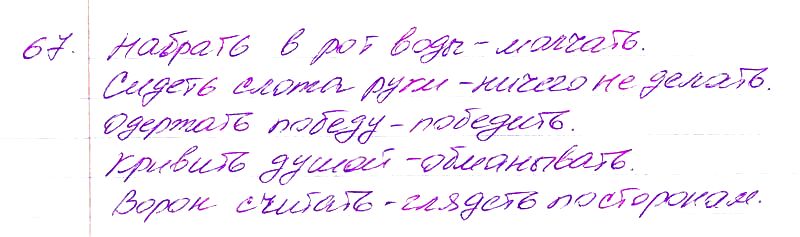 67. Набрать в рот воды - молчать.
Сидеть сложа руки - ничего не делать.
Одержать победу - победить.
Кривить душой - обманывать.
Ворон считать - глядеть по сторонам.